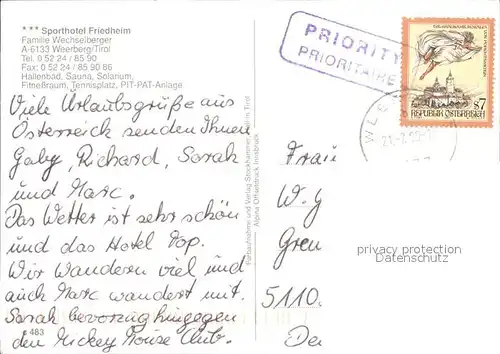 *** Sporthotel Friedheim
Familie Wechselberger
A-6133 Weerberg/Tirol
Tel. 0 52 24 / 85 90
Fax: 0 52 24 / 85 90 86
Hallenbad, Sauna, Solarium,
Fitneßraum, Tennisplatz, PIT-PAT-Anlage
Viele Urlaubsgrüße aus
Österreich senden Ihnen
Gaby, Richard, Sarah
und Marc.
Das Wetter ist sehr schön
und das Hotel Top.
Wir wandern viel und
auch Marc wandert mit.
Sarah bevorzug hingegen
den Mickey Mouse Club.
483
Farbaufnahme und Verlag Stockhammer, Tirol
Alpina Offsetdruck Innsbruck
PRIORITY
PRIORITAIRE
S7
REPUBLIK ÖSTERREICH
WEER
Frau
W. G
Gren
privacy protection
Datenschutz
5110.
De